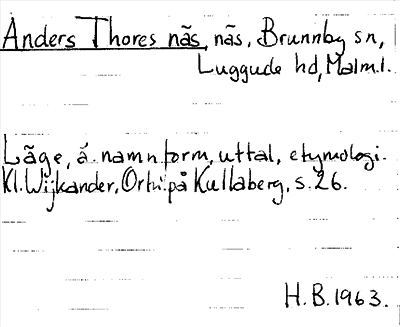 Anders Thores näs, näs, Brunnby sn,
Luggude hd, Malm.l.
Läge, ä. namnform, uttal, etymologi.
Kl. Wijkander, Ortn. på Kullaberg, s. 26.
H.B. 1963.